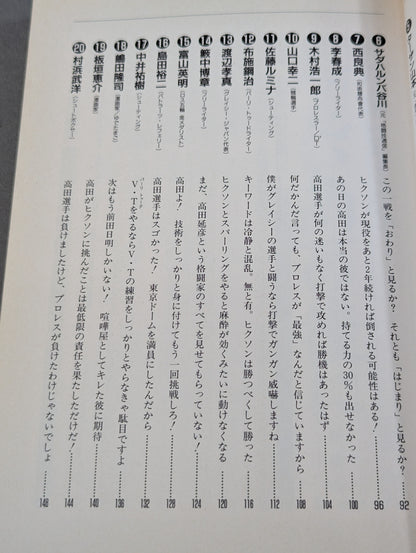 ❻サダハルンバ谷川(元『格闘技通信』編集長)
この一戦を「おわり」と見るか? それとも「はじまり」と見るか? 92
❼西良典(和術慧舟會代表)
ヒクソンが現役をあと2年続ければ倒される可能性はある! 96
❽李春成(フリーライター)
あの日の高田は本当の彼ではない。持てる力の30%も出せなかった 100
❾木村浩一郎(プロレスラー)
高田選手が何の迷いもなく打撃で攻めれば勝機はあったはず 104
❿山口幸二(競輪選手)
何だかんだ言っても、プロレスが「最強」なんだと信じていますから 108
⓫佐藤ルミナ(シューティング)
僕がグレイシーの選手と闘うなら打撃でガンガン威嚇しますね 112
⓬布施鋼治(フリーライター)
キーワードは冷静と混乱。無と有。ヒクソンは勝つべくして勝った 116
⓭渡辺孝真(グレイシー・ジャパン代表)
ヒクソンとスパーリングをやると麻酔が効くみたいに動けなくなる 120
⓮籔中博章(フリーライター)
まだ、高田延彦という格闘家のすべてを見せてもらっていない! 124
⓯富山英明(ロス五輪・金メダリスト)
高田よ! 技術をしっかりと身に付けてもう一回挑戦しろ! 128
⓰島田裕二(バトラーツ・レフェリー)
高田選手はスゴかった! 東京ドームを満員にしたんだから 132
⓱中井祐樹(シューティング)
V・TをやるならV・Tの練習をしっかりとやらなきゃ駄目ですよ 136
⓲嶋田隆司(漫画家・ゆでたまご)
次はもう前田日明しかいない! 喧嘩屋としてキレた彼に期待 140
⓳板垣恵介(漫画家)
高田がヒクソンに挑んだことは最低限の責任を果たしただけだ! 144
⓴村浜武洋(シュートボクサー)
高田選手は負けましたけど、プロレスが負けたわけじゃないでしょ 148